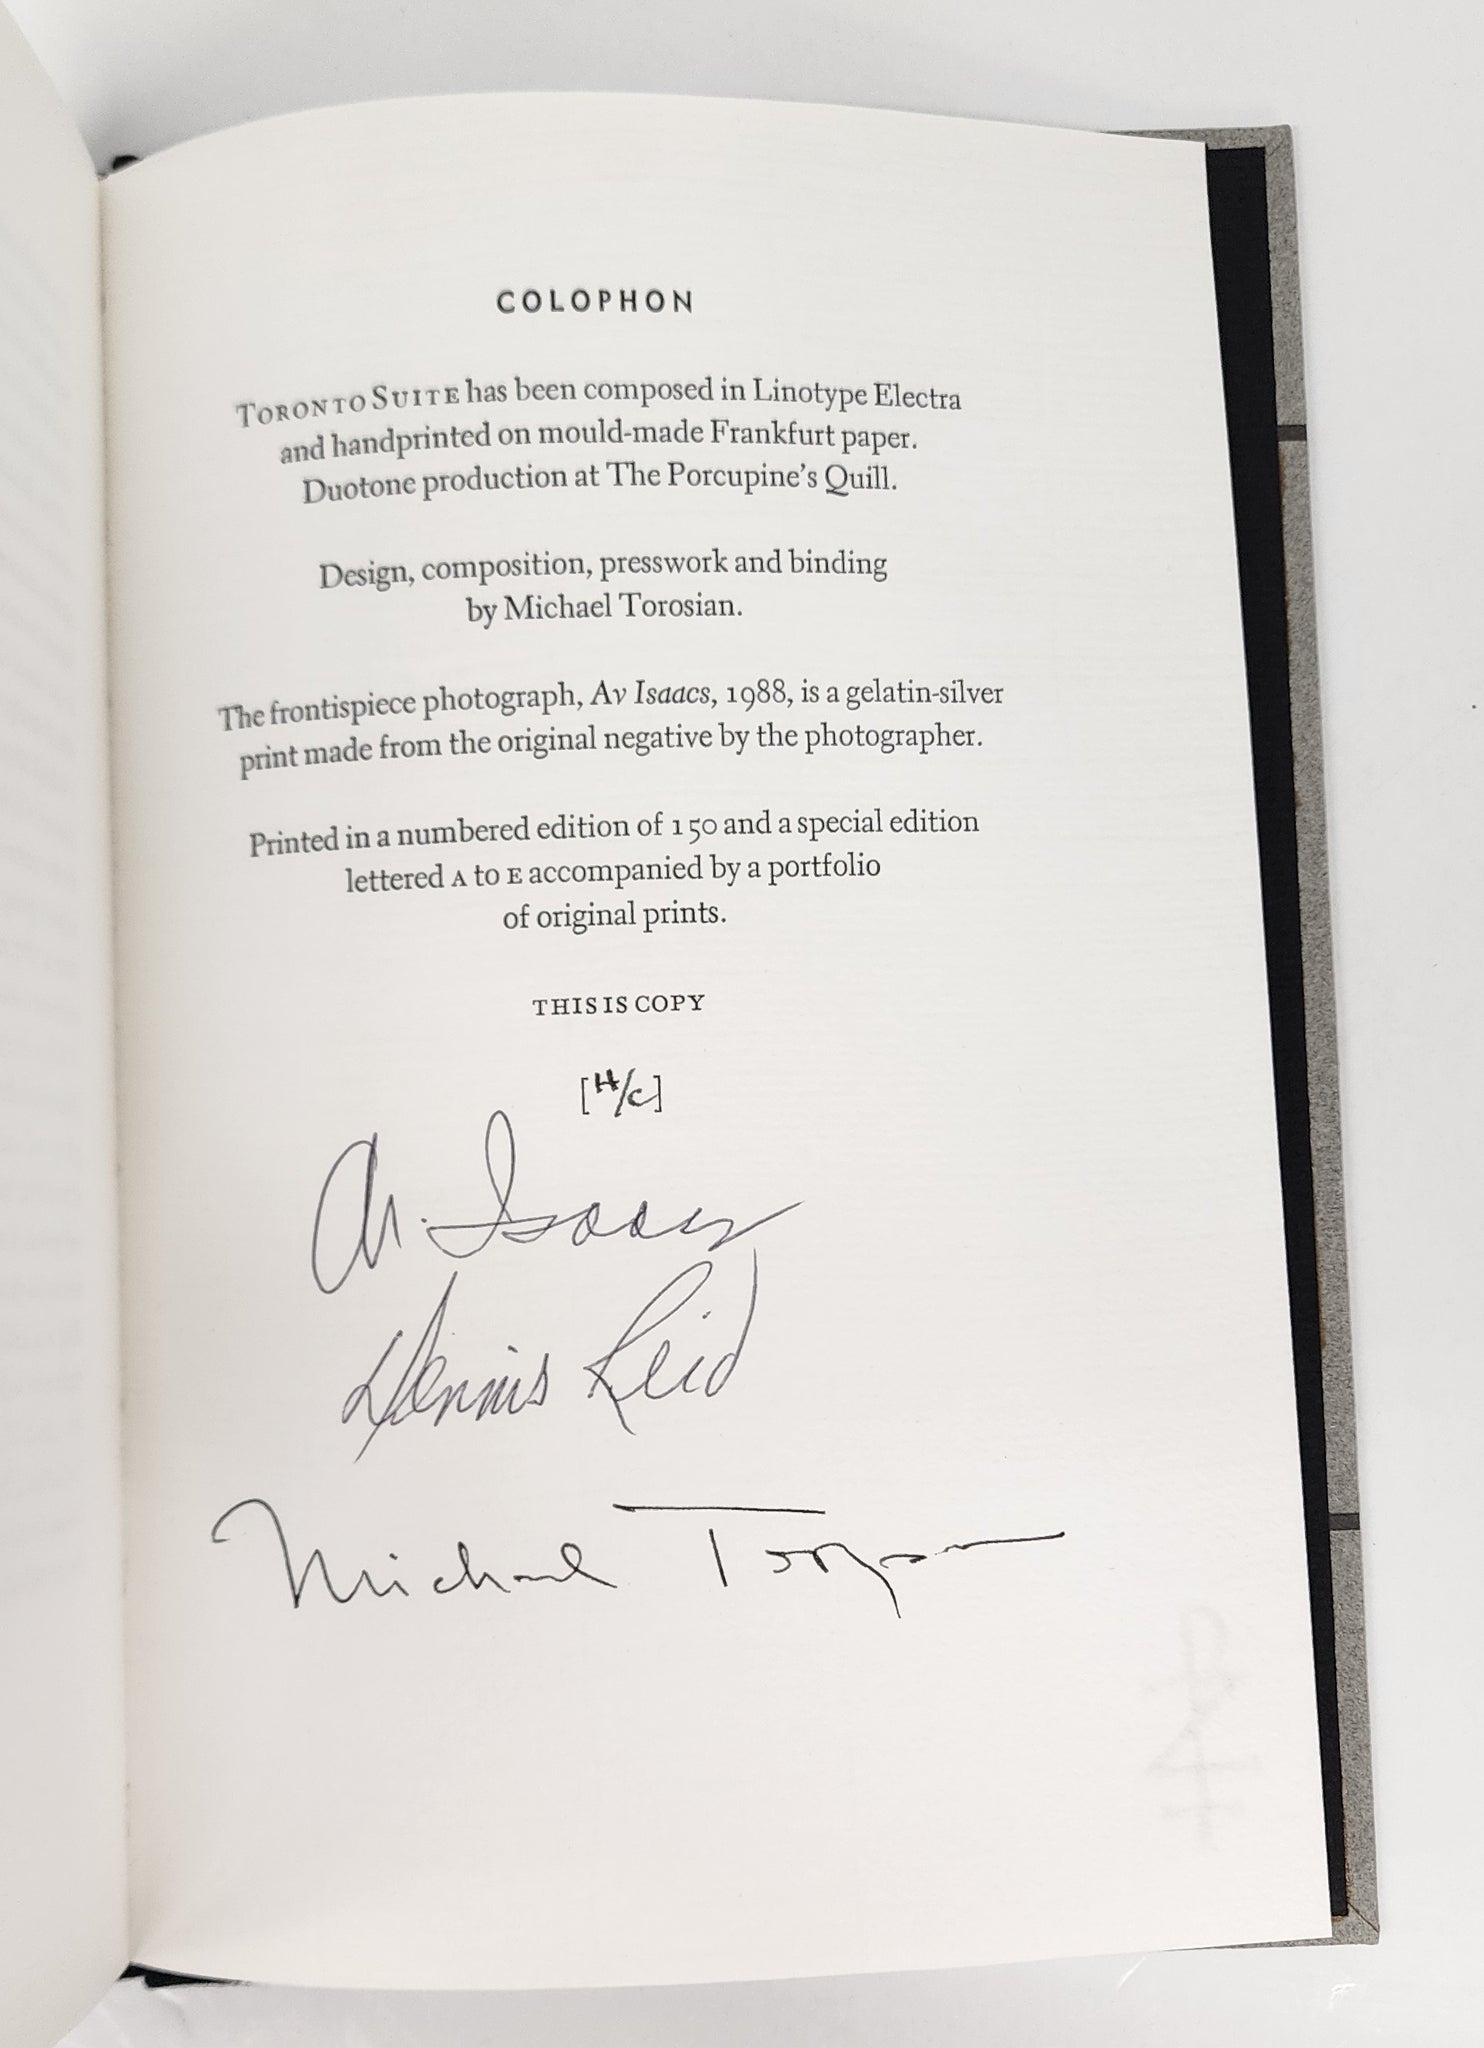 COLOPHON
TORONTO SUITE has been composed in Linotype Electra
and handprinted on mould-made Frankfurt paper.
Duotone production at The Porcupine's Quill.
Design, composition, presswork and binding
by Michael Torosian.
The frontispiece photograph, Av Isaacs, 1988, is a gelatin-silver
print made from the original negative by the photographer.
Printed in a numbered edition of 150 and a special edition
lettered A to E accompanied by a portfolio
of original prints.
THIS IS COPY
[H/C]
Av. Isaacs
Dennis Reid
Michael Torosian